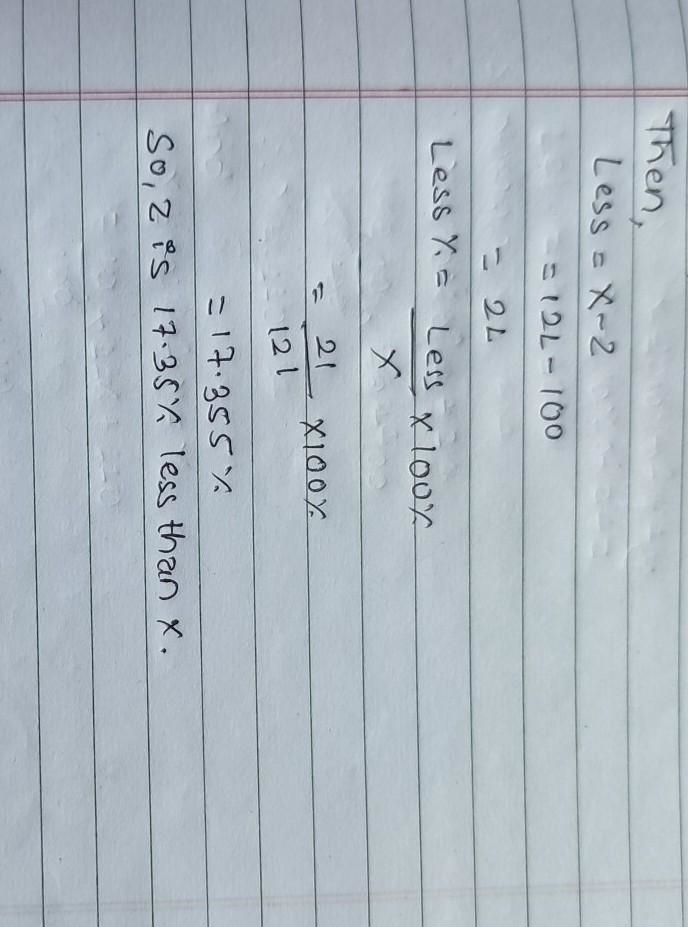 Then,
Less = X-2
= 121-100
= 21
Less % = Less/X × 100%
= 21/121 ×100%
= 17.355%
So, 2 is 17.35% less than X.